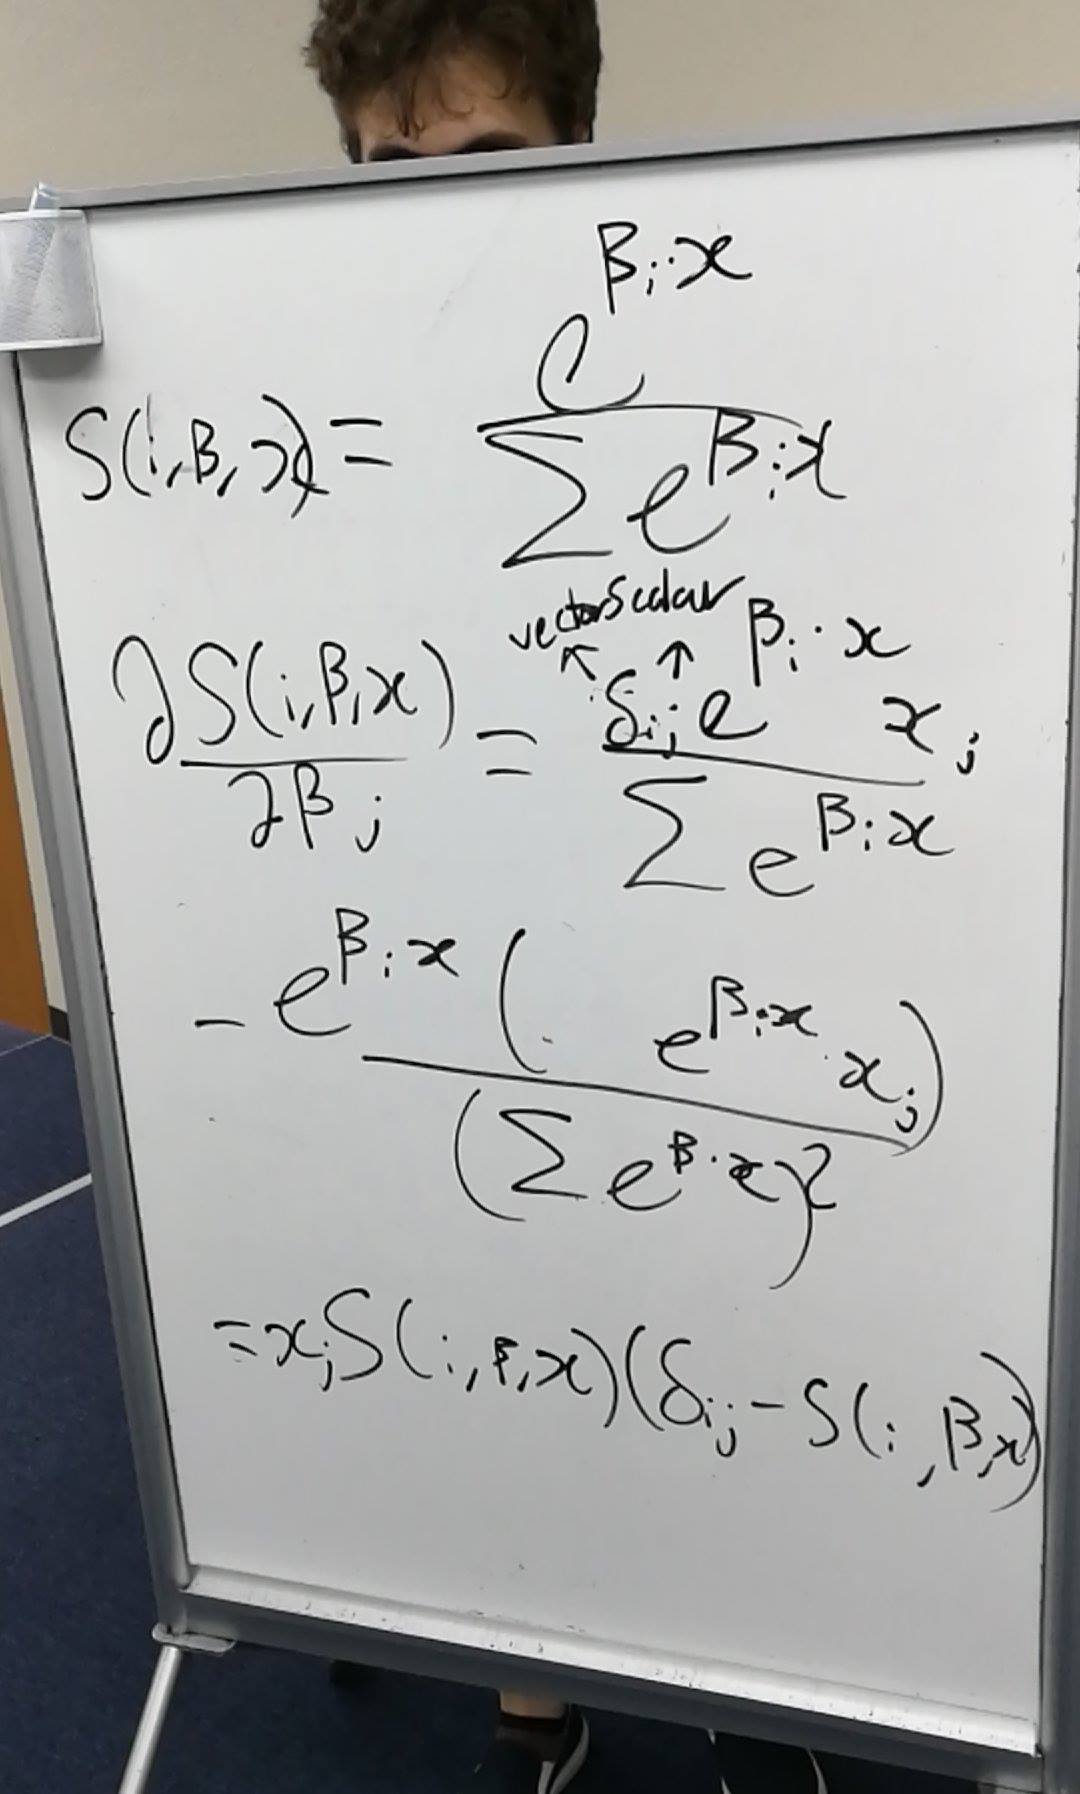 S(i,β,x) = e^{β_i·x} / Σ e^{β_i·x}
vector scalar
↖ ↑
∂S(i,β,x) / ∂β_j = δ_{ij} e^{β_i·x} x_j / Σ e^{β_i·x}
- e^{β_i·x} ( e^{β_i·x} · x_j ) / (Σ e^{β·x})^2
= x_j S(i,β,x)(δ_{ij} - S(i,β,x))